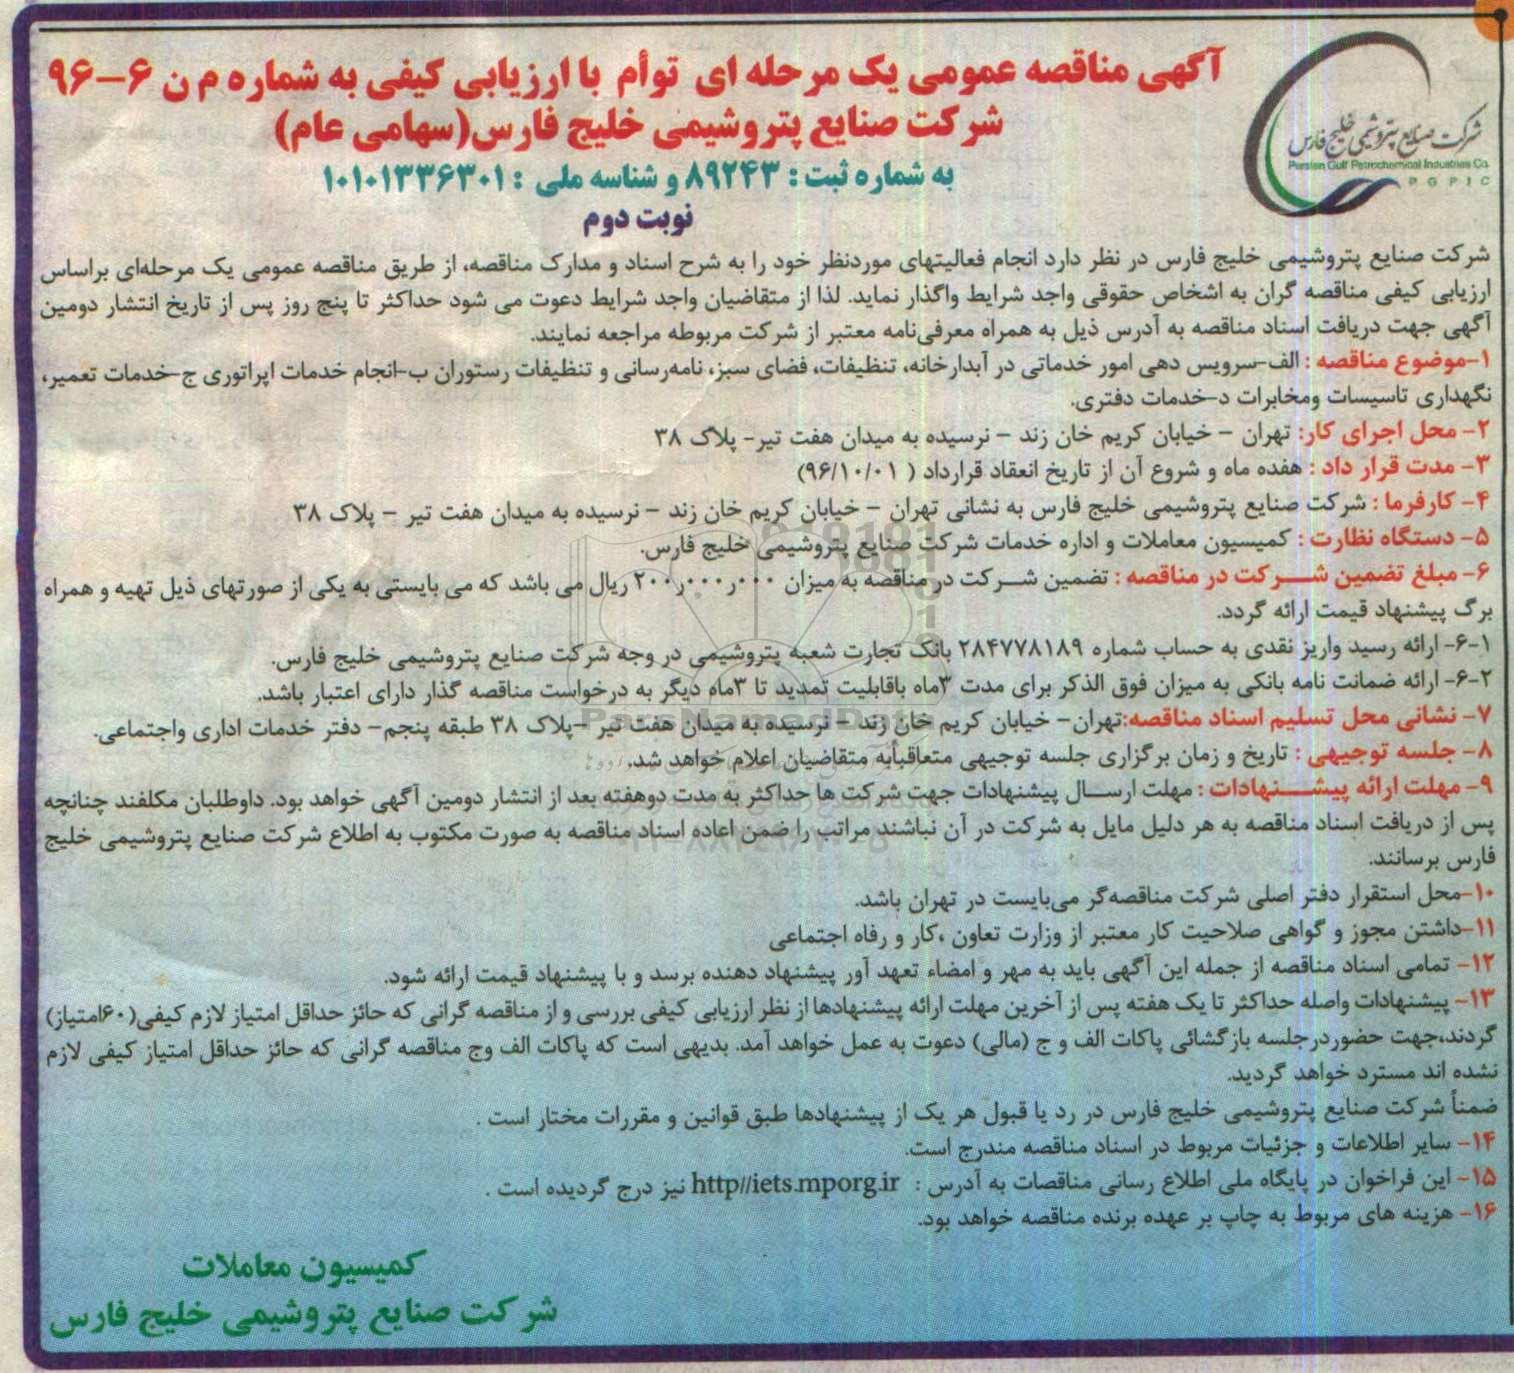 آگهی مناقصه عمومی یک مرحله ای توأم با ارزیابی کیفی به شماره م ن ۶-۹۶
شرکت صنایع پتروشیمی خلیج فارس(سهامی عام)
به شماره ثبت : ۸۹۲۴۳ و شناسه ملی : ۱۰۱۰۱۳۳۶۳۰۱
نوبت دوم
شرکت صنایع پتروشیمی خلیج فارس
Persian Gulf Petrochemical Industries Co.
P G P I C
شرکت صنایع پتروشیمی خلیج فارس در نظر دارد انجام فعالیتهای موردنظر خود را به شرح اسناد و مدارک مناقصه، از طریق مناقصه عمومی یک مرحله‌ای براساس
ارزیابی کیفی مناقصه گران به اشخاص حقوقی واجد شرایط واگذار نماید. لذا از متقاضیان واجد شرایط دعوت می شود حداکثر تا پنج روز پس از تاریخ انتشار دومین
آگهی جهت دریافت اسناد مناقصه به آدرس ذیل به همراه معرفی‌نامه معتبر از شرکت مربوطه مراجعه نمایند.
۱-موضوع مناقصه : الف-سرویس دهی امور خدماتی در آبدارخانه، تنظیفات، فضای سبز، نامه‌رسانی و تنظیفات رستوران ب-انجام خدمات اپراتوری ج-خدمات تعمیر،
نگهداری تاسیسات ومخابرات د-خدمات دفتری.
۲- محل اجرای کار: تهران – خیابان کریم خان زند – نرسیده به میدان هفت تیر- پلاک ۳۸
۳- مدت قرار داد : هفده ماه و شروع آن از تاریخ انعقاد قرارداد ( ۹۶/۱۰/۰۱)
۴- کارفرما : شرکت صنایع پتروشیمی خلیج فارس به نشانی تهران – خیابان کریم خان زند – نرسیده به میدان هفت تیر – پلاک ۳۸
۵- دستگاه نظارت : کمیسیون معاملات و اداره خدمات شرکت صنایع پتروشیمی خلیج فارس.
۶- مبلغ تضمین شرکت در مناقصه : تضمین شرکت در مناقصه به میزان ۲۰۰٫۰۰۰٫۰۰۰ ریال می باشد که می بایستی به یکی از صورتهای ذیل تهیه و همراه
برگ پیشنهاد قیمت ارائه گردد.
۶-۱- ارائه رسید واریز نقدی به حساب شماره ۲۸۴۷۷۸۱۸۹ بانک تجارت شعبه پتروشیمی در وجه شرکت صنایع پتروشیمی خلیج فارس.
۶-۲- ارائه ضمانت نامه بانکی به میزان فوق الذکر برای مدت ۳ماه باقابلیت تمدید تا ۳ماه دیگر به درخواست مناقصه گذار دارای اعتبار باشد.
۷- نشانی محل تسلیم اسناد مناقصه:تهران- خیابان کریم خان زند – نرسیده به میدان هفت تیر -پلاک ۳۸ طبقه پنجم- دفتر خدمات اداری واجتماعی.
۸- جلسه توجیهی : تاریخ و زمان برگزاری جلسه توجیهی متعاقباًبه متقاضیان اعلام خواهد شد.
۹- مهلت ارائه پیشنهادات : مهلت ارسال پیشنهادات جهت شرکت ها حداکثر به مدت دوهفته بعد از انتشار دومین آگهی خواهد بود. داوطلبان مکلفند چنانچه
پس از دریافت اسناد مناقصه به هر دلیل مایل به شرکت در آن نباشند مراتب را ضمن اعاده اسناد مناقصه به صورت مکتوب به اطلاع شرکت صنایع پتروشیمی خلیج
فارس برسانند.
۱۰-محل استقرار دفتر اصلی شرکت مناقصه‌گر می‌بایست در تهران باشد.
۱۱-داشتن مجوز و گواهی صلاحیت کار معتبر از وزارت تعاون ،کار و رفاه اجتماعی
۱۲- تمامی اسناد مناقصه از جمله این آگهی باید به مهر و امضاء تعهد آور پیشنهاد دهنده برسد و با پیشنهاد قیمت ارائه شود.
۱۳- پیشنهادات واصله حداکثر تا یک هفته پس از آخرین مهلت ارائه پیشنهادها از نظر ارزیابی کیفی بررسی و از مناقصه گرانی که حائز حداقل امتیاز لازم کیفی(۶۰امتیاز)
گردند،جهت حضوردرجلسه بازگشائی پاکات الف و ج (مالی) دعوت به عمل خواهد آمد. بدیهی است که پاکات الف وج مناقصه گرانی که حائز حداقل امتیاز کیفی لازم
نشده اند مسترد خواهد گردید.
ضمناً شرکت صنایع پتروشیمی خلیج فارس در رد یا قبول هر یک از پیشنهادها طبق قوانین و مقررات مختار است .
۱۴- سایر اطلاعات و جزئیات مربوط در اسناد مناقصه مندرج است.
۱۵- این فراخوان در پایگاه ملی اطلاع رسانی مناقصات به آدرس : http//iets.mporg.ir نیز درج گردیده است .
۱۶- هزینه های مربوط به چاپ بر عهده برنده مناقصه خواهد بود.
کمیسیون معاملات
شرکت صنایع پتروشیمی خلیج فارس